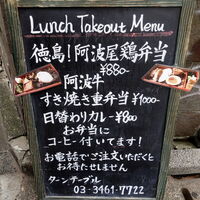 Lunch Takeout Menu
徳島!阿波尾鶏弁当
¥880-
阿波牛
すき焼き重弁当¥1000-
日替わりカレー¥800
お弁当に
コーヒー付いてます!
お電話でご注文いただくと
お待たせしません
ターンテーブル
03-3461-7722